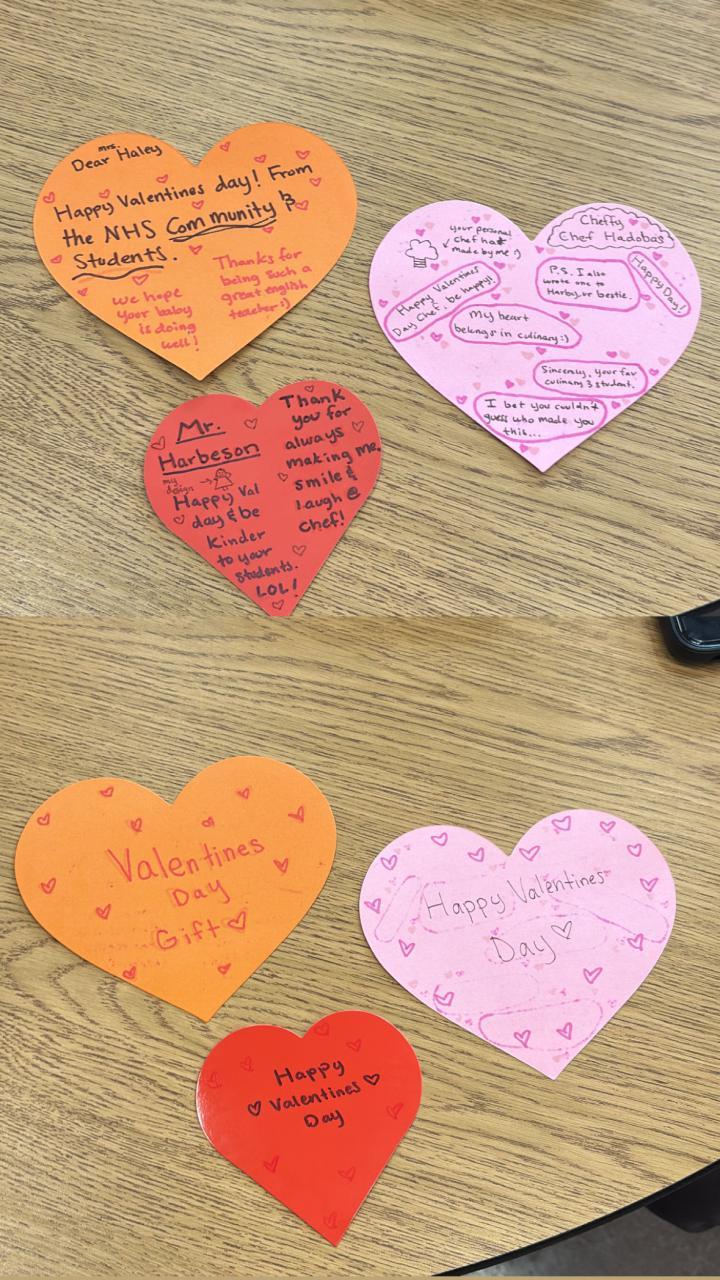 Dear Mrs. Haley
Happy Valentines day! From
the NHS Community &
Students.
we hope
your baby
is doing
well!
Thanks for
being such a
great english
teacher:)
your personal
chef hat
made by me :)
Cheffy
Chef Hadobas
Happy Valentines
Day Chef, be happy!
P.S. I also
wrote one to
Harby, ur bestie.
Happy Day!
My heart
belongs in culinary:)
Sincerly, your fav
culinary 3 student.
I bet you couldn't
guess who made you
this...
Mr.
Harbeson
my
design
Happy Val
day & be
kinder
to your
students.
LOL!
Thank
you for
always
making me
smile &
laugh
chef!
Valentines
Day
Gift
Happy Valentines
Day
Happy
Valentines
Day